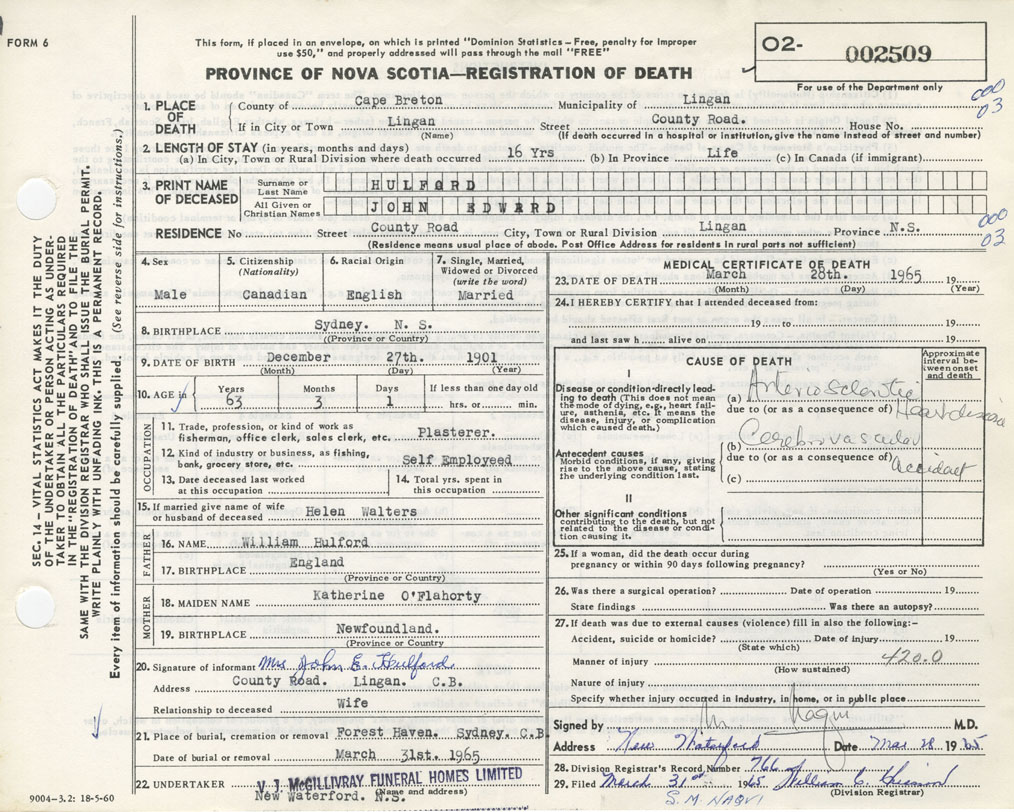 FORM 6
This form, if placed in an envelope, on which is printed "Dominion Statistics – Free, penalty for improper
use $50," and properly addressed will pass through the mail "FREE"
PROVINCE OF NOVA SCOTIA—REGISTRATION OF DEATH
O2- 002509
For use of the Department only
000
03
1. PLACE OF DEATH
County of Cape Breton Municipality of Lingan
If in City or Town Lingan Street County Road. House No.
(Name) (If death occurred in a hospital or institution, give the name instead of street and number)
2. LENGTH OF STAY (in years, months and days)
(a) In City, Town or Rural Division where death occurred 16 Yrs (b) In Province Life (c) In Canada (if immigrant)
3. PRINT NAME OF DECEASED
Surname or Last Name HULFORD
All Given or Christian Names JOHN EDWARD
RESIDENCE No Street County Road City, Town or Rural Division Lingan Province N.S.
(Residence means usual place of abode. Post Office Address for residents in rural parts not sufficient)
000
03
SEC. 14 – VITAL STATISTICS ACT MAKES IT THE DUTY
OF THE UNDERTAKER OR PERSON ACTING AS UNDER-
TAKER TO OBTAIN ALL THE PARTICULARS REQUIRED
IN THE "REGISTRATION OF DEATH" AND TO FILE THE
SAME WITH THE DIVISION REGISTRAR WHO SHALL ISSUE THE BURIAL PERMIT.
WRITE PLAINLY WITH UNFADING INK. THIS IS A PERMANENT RECORD.
Every item of information should be carefully supplied. (See reverse side for instructions.)
4. Sex
Male
5. Citizenship
(Nationality)
Canadian
6. Racial Origin
English
7. Single, Married,
Widowed or Divorced
(write the word)
Married
8. BIRTHPLACE Sydney. N. S.
(Province or Country)
9. DATE OF BIRTH December 27th. 1901
(Month) (Day) (Year)
10. AGE in
Years Months Days If less than one day old
63 3 1 hrs. or min.
OCCUPATION
11. Trade, profession, or kind of work as
fisherman, office clerk, sales clerk, etc. Plasterer.
12. Kind of industry or business, as fishing,
bank, grocery store, etc. Self Employeed
13. Date deceased last worked
at this occupation
14. Total yrs. spent in
this occupation
15. If married give name of wife
or husband of deceased Helen Walters
FATHER
16. NAME William Hulford
17. BIRTHPLACE England
(Province or Country)
MOTHER
18. MAIDEN NAME Katherine O'Flahorty
19. BIRTHPLACE Newfoundland.
(Province or Country)
20. Signature of informant Mrs John E. Hulford
Address County Road. Lingan. C.B.
Relationship to deceased Wife
21. Place of burial, cremation or removal Forest Haven. Sydney. C.B.
Date of burial or removal March 31st. 1965
22. UNDERTAKER V. J. McGILLIVRAY FUNERAL HOMES LIMITED
New Waterford. N.S. (Name and address)
9004-3.2: 18-5-60
MEDICAL CERTIFICATE OF DEATH
23. DATE OF DEATH March 28th. 1965 19
(Month) (Day) (Year)
24. I HEREBY CERTIFY that I attended deceased from:
19 to 19
and last saw h alive on 19
CAUSE OF DEATH
Approximate
interval be-
tween onset
and death
I
Disease or condition directly lead-
ing to death (This does not mean
the mode of dying, e.g., heart fail-
ure, asthenia, etc. It means the
disease, injury, or complication
which caused death.)
(a) Arteriosclerotic
due to (or as a consequence of) Heart disease
Antecedent causes
Morbid conditions, if any, giving
rise to the above cause, stating
the underlying condition last.
(b) Cerebrovascular
due to (or as a consequence of) Accident
(c)
II
Other significant conditions
contributing to the death, but not
related to the disease or condi-
tion causing it.
25. If a woman, did the death occur during
pregnancy or within 90 days following pregnancy?
(Yes or No)
26. Was there a surgical operation? Date of operation 19
State findings Was there an autopsy?
27. If death was due to external causes (violence) fill in also the following:–
Accident, suicide or homicide? Date of injury 19
(State which)
Manner of injury 420.0
(How sustained)
Nature of injury
Specify whether injury occurred in industry, in home, or in public place
Signed by M.D.
Address New Waterford Date Mar 28 1965
28. Division Registrar's Record Number 766
29. Filed March 31st 1965 William
(Division Registrar)
S.M. NAQVI